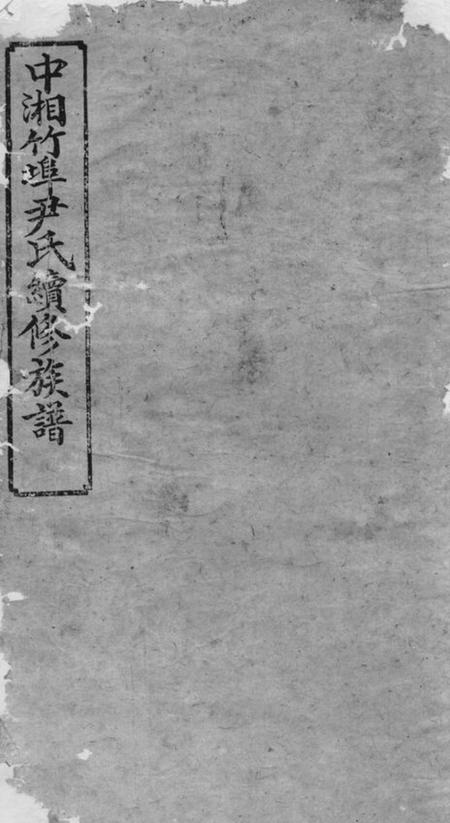 中湘竹埠尹氏續修族譜